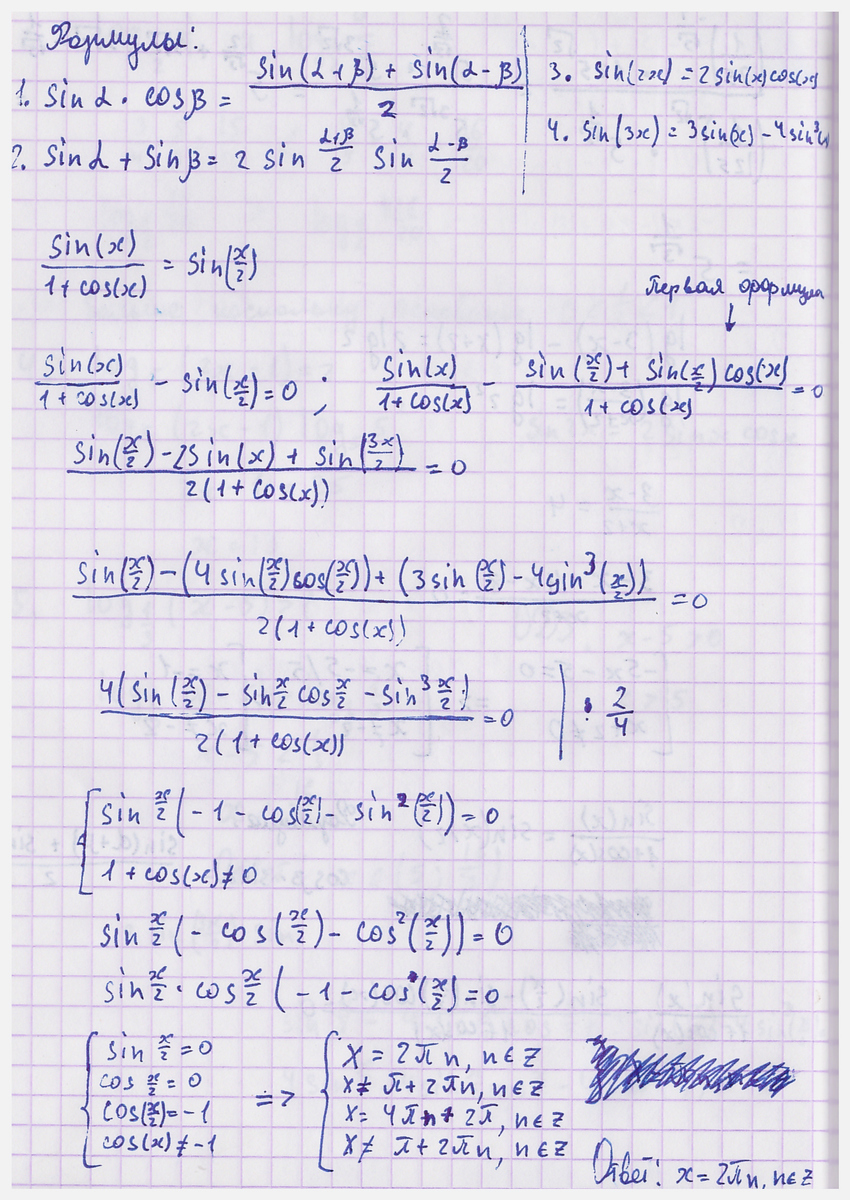 Формулы:
1. sin α · cos β = (sin(α+β) + sin(α-β))/2
2. sin α + sin β = 2 sin (α+β)/2 sin (α-β)/2
3. sin(2x) = 2 sin(x) cos(x)
4. sin(3x) = 3sin(x) - 4sin³(x)
sin(x)/(1+cos(x)) = sin(x/2)
Первая формула
↓
sin(x)/(1+cos(x)) - sin(x/2) = 0 ; sin(x)/(1+cos(x)) - (sin(x/2) + sin(x/2) cos(x))/(1+cos(x)) = 0
(sin(x/2) - 2sin(x) + sin(3x/2))/(2(1+cos(x))) = 0
(sin(x/2) - (4 sin(x/2) cos(x/2)) + (3 sin(x/2) - 4sin³(x/2)))/(2(1+cos(x))) = 0
4(sin(x/2) - sin x/2 cos x/2 - sin³ x/2)/(2(1+cos(x))) = 0 | : 2/4
[ sin x/2 (-1 - cos(x/2) - sin²(x/2)) = 0
1 + cos(x) ≠ 0
sin x/2 (- cos(x/2) - cos²(x/2)) = 0
sin x/2 · cos x/2 (-1 - cos(x/2) = 0
{ sin x/2 = 0
cos x/2 = 0
cos(x/2) = -1
cos(x) ≠ -1
=>
{ x = 2πn, n∈Z
x ≠ π + 2πn, n∈Z
x = 4πn + 2π, n∈Z
x ≠ π + 2πn, n∈Z
Ответ: x = 2πn, n∈Z